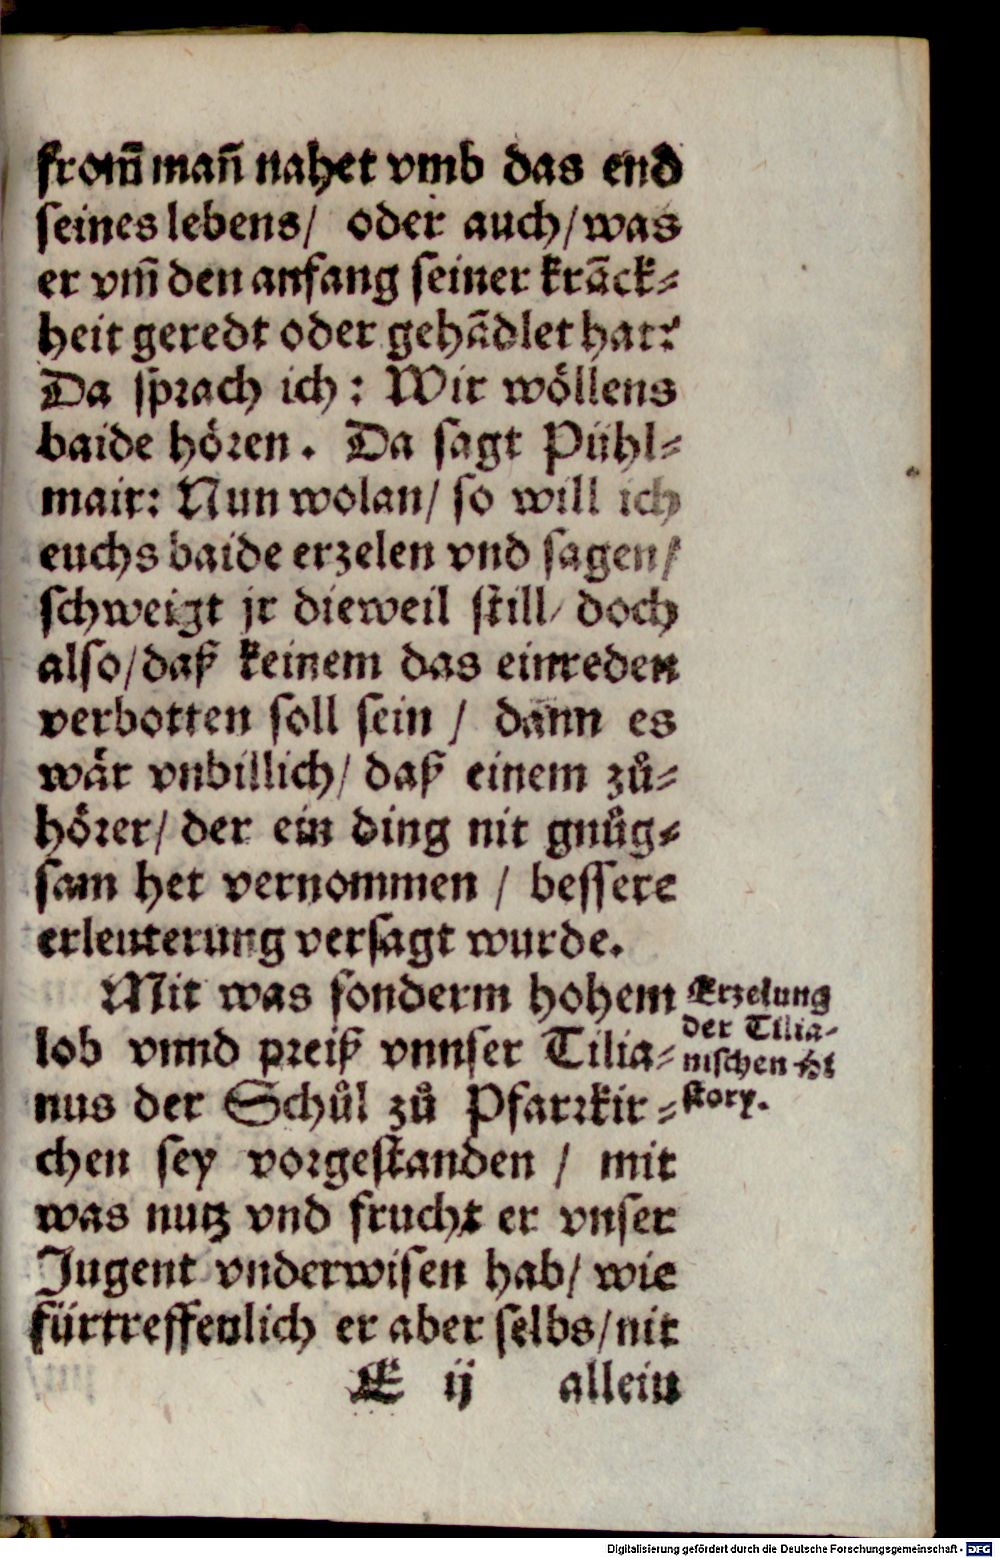 from̃ mañ nahet vmb das end
seines lebens/ oder auch/ was
er vm̃ den anfang seiner krãck⸗
heit geredt oder gehãdlet hat?
Da sprach ich: Wir wöllens
baide hören. Da sagt Pühl⸗
mair: Nun wolan/ so will ich
euchs baide erzelen vnd sagen/
schweigt jr dieweil still/ doch
also/ daß keinem das einreden
verbotten soll sein / dann es
wär vnbillich/ daß einem zů⸗
hörer/ der ein ding nit gnůg⸗
sam het vernommen / bessere
erleuterung versagt wurde.
Mit was sonderm hohem
lob vnnd preiß vnnser Tilia⸗
nus der Schůl zů Pfarrkir⸗
chen sey vorgestanden / mit
was nutz vnd frucht er vnser
Jugent vnderwisen hab/ wie
fürtreffenlich er aber selbs/ nit
E ij allein
Erzelung
der Tilia-
nischen Hi
story.
Digitalisierung gefördert durch die Deutsche Forschungsgemeinschaft - DFG